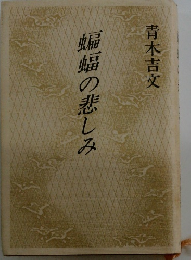 青木吉文
蝙蝠の悲しみ